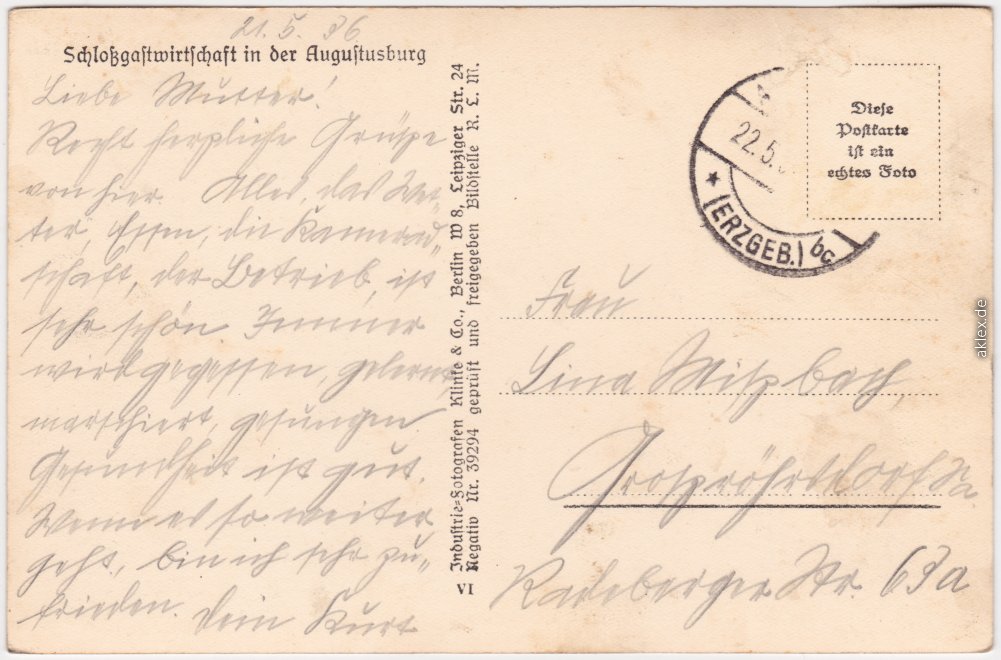 21.5.36
Schloßgastwirtschaft in der Augustusburg
Liebe Mutter!
Recht herzliche Grüße
von hier. Alles, das Wet-
ter, Essen, die Kamerad-
schaft, der Betrieb, ist
sehr schön. Immer
wird gegessen, gelernt,
marschiert, gesungen
Gesundheit ist gut.
Wenn es so weiter
geht, bin ich sehr zu-
frieden. Dein Kurt
Industrie-Fotografen Klinke & Co., Berlin W 8, Leipziger Str. 24
Negativ Nr. 39294 geprüft und freigegeben Bildstelle R. L. M.
VI
22.5.
(ERZGEB.) bc
Diese
Postkarte
ist ein
echtes Foto
Frau
Lina Mitzbach,
Grosröhrsdorf Sa
Radeberger Str. 63a
aklex.de